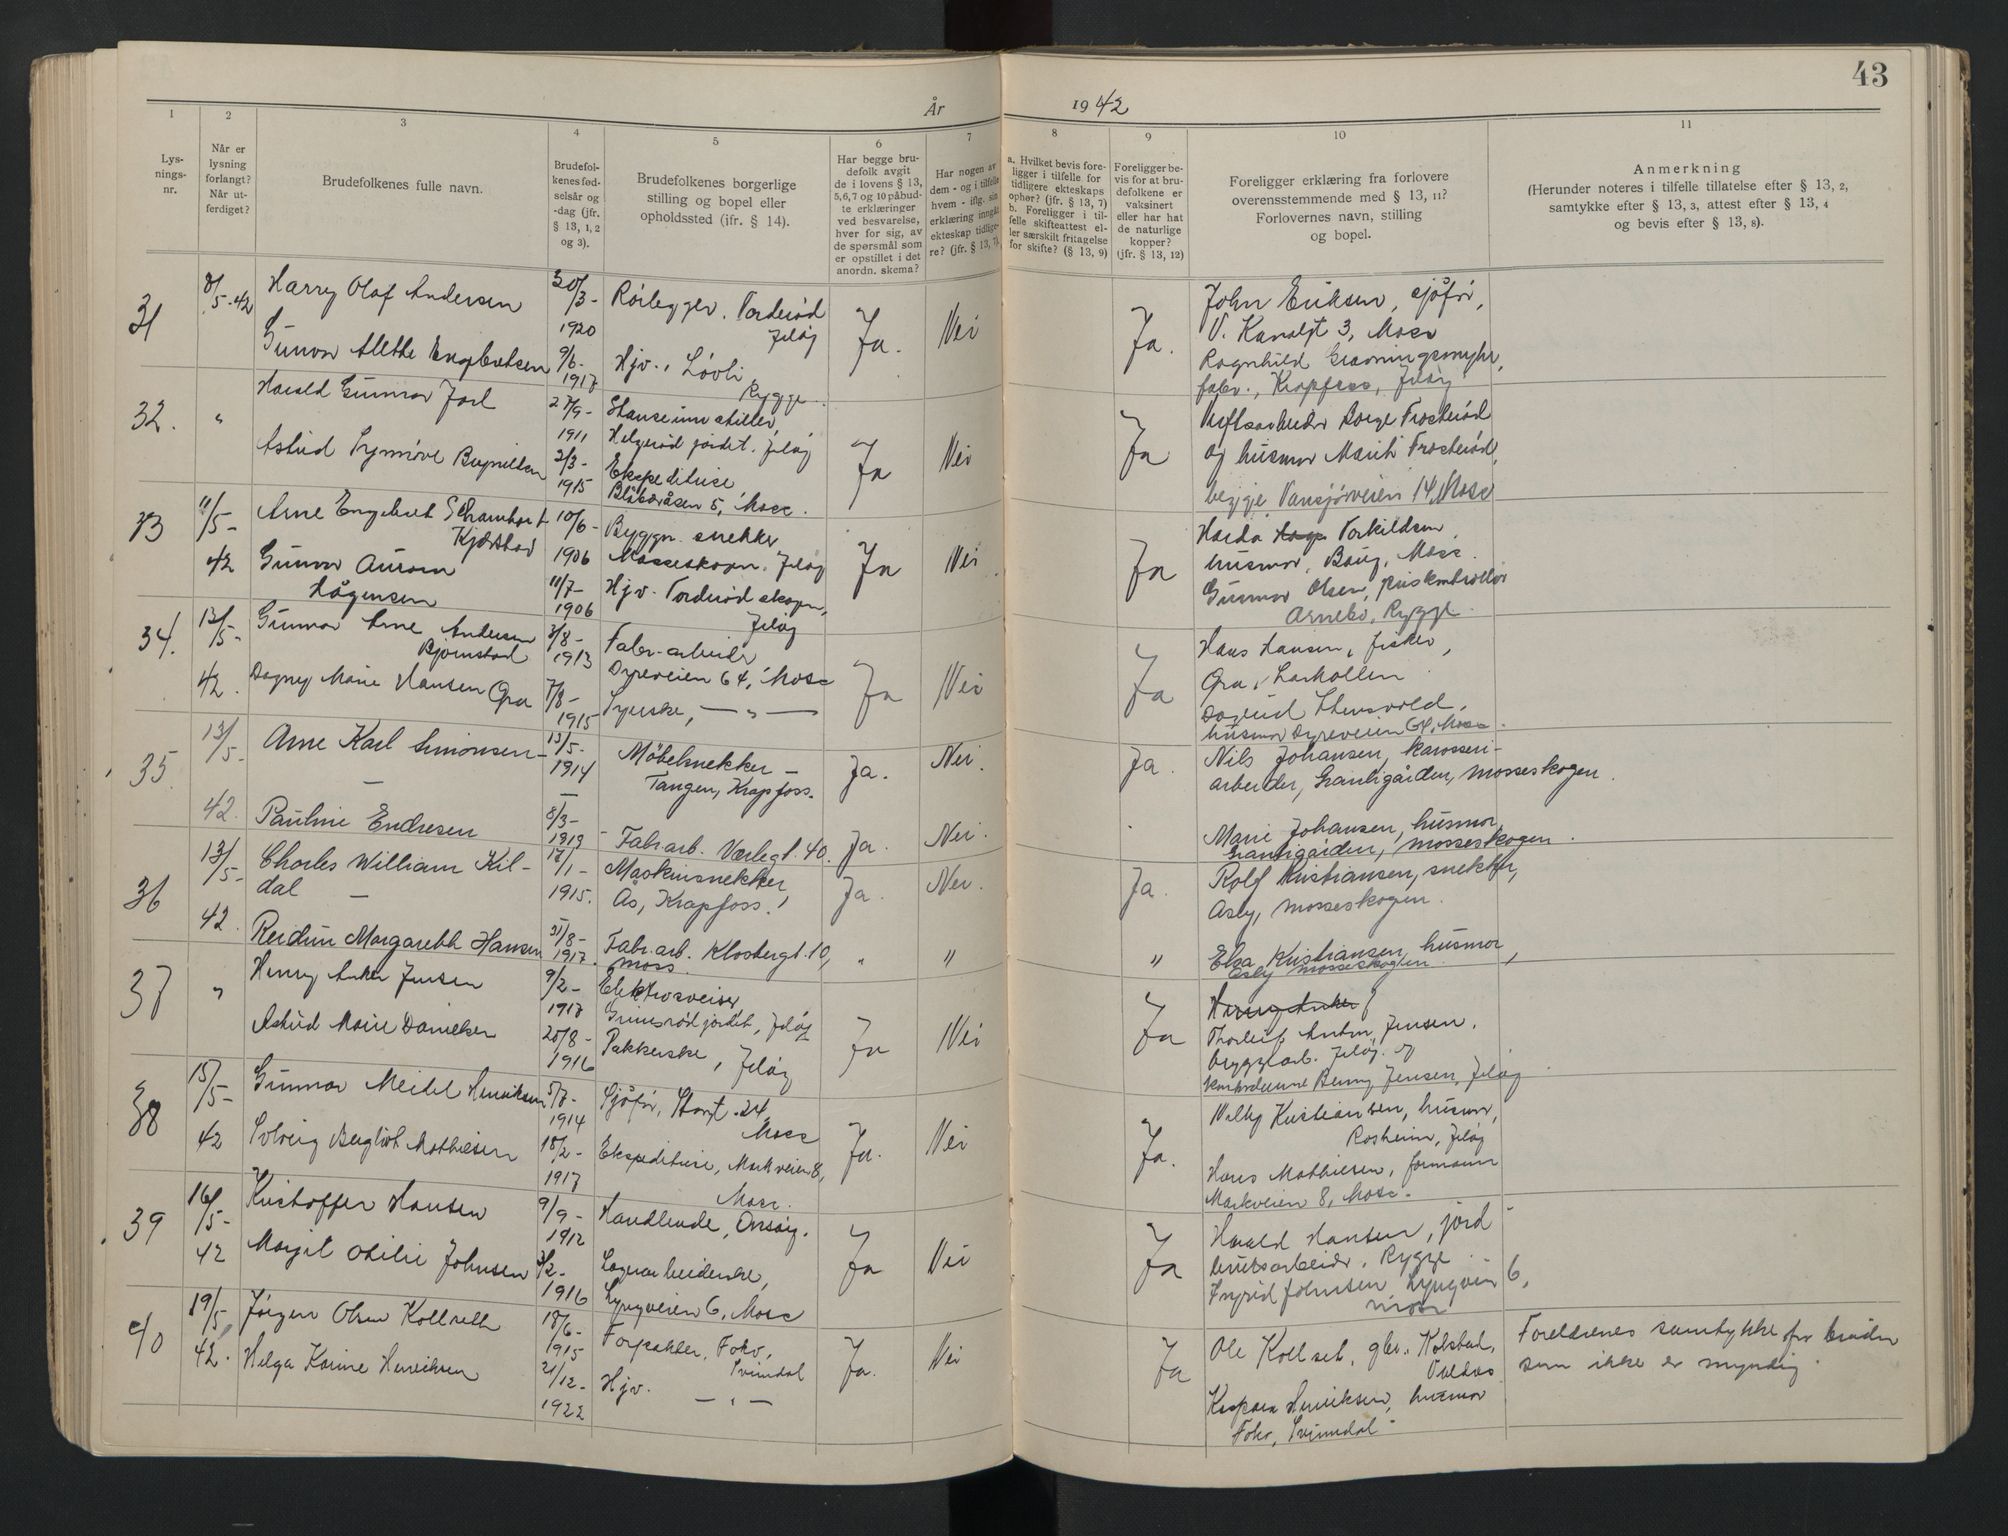 43
År 1942
1
2
3
4
5
6
7
8
9
10
11
Lys-
nings-
nr.
Når er
lysning
forlangt?
Når ut-
ferdiget?
Brudefolkenes fulle navn.
Brudefol-
kenes fød-
selsår og
-dag (jfr.
§ 13, 1, 2
og 3).
Brudefolkenes borgerlige
stilling og bopel eller
opholdssted (jfr. § 14).
Har begge bru-
defolk avgit
de i lovens § 13,
5,6,7 og 10 påbud-
te erklæringer
ved besvarelse,
hver for sig, av
de spørsmål som
er opstillet i det
anordn. skema?
Har nogen av
dem - og i tilfelle
hvem - iflg. sin
erklæring inngått
ekteskap tidlige-
re? (jfr. § 13, 7).
a. Hvilket bevis fore-
ligger i tilfelle for
tidligere ekteskaps
ophør? (jfr. § 13, 7)
b. Foreligger i til-
felle skifteattest el-
ler særskilt fritagelse
for skifte? (§ 13, 9)
Foreligger be-
vis for at bru-
defolkene er
vaksinert
eller har hat
de naturlige
kopper?
(jfr. § 13, 12)
Foreligger erklæring fra forlovere
overensstemmende med § 13, 11?
Forlovernes navn, stilling
og bopel.
Anmerkning
(Herunder noteres i tilfelle tillatelse efter § 13, 2,
samtykke efter § 13, 3, attest efter § 13, 4
og bevis efter § 13, 8).
31
8/5-42
Harry Olaf Andersen
30/3-
1920
Rørlegger, Torderød
Jeløy
Gunvor Alethe Engebretsen
9/6-
1917
Hjv., Løvli
Rygge
Ja.
Nei
Ja.
John Eriksen, sjåfør,
V. Kanalgt 3, Moss
Ragnhild
fabr., Krapfoss, Jeløy
32.
"
Harald Gunnar Jarl
27/9-
1911
Stanseinnstiller,
Helgerød jordet, Jeløy
Astrid Synnøve
2/3-
1915
Ekspeditrise
Blåbæråsen 5, Moss.
Ja
Nei
Ja
Børge Trosterød
og husmor Marit Trosterød,
begge Vansjøveien 14, Moss
33
11/5-
42
Arne Engebret
Kjærstad
10/6-
1906
Byggn. snekker
Mosseskogen, Jeløy
Gunvor Aurora
Hågensen
11/7-
1906
Hjv. Torderød skogen,
Jeløy
Ja
Nei.
Ja
Torkildsen
husmor, Moss.
Gunnar Olsen, priskontrollør
Arnebo, Rygge.
34.
13/5-
42.
Gunnar Arne Andersen
Bjørnstad
3/8-
1913
Fabr.arbeider
Dyreveien 64, Moss
Dagny Marie Hansen Gra
7/8-
1915
Syerske, — " —
Ja
Nei
Ja
Hans Hansen, fisker,
Gra, Larkollen
husmor Dyreveien 64, Moss.
35
13/5-
42.
Arne Karl Simonsen -
—
13/5-
1914
—
Møbelsnekker -
Tangen, Krapfoss.
Pauline Endresen
8/3-
1919
Fabr.arb. Værlegt. 40.
Ja.
Nei.
Ja.
Nei.
Ja.
Nils Johansen, karosseri-
arbeider, Granligården, Mosseskogen.
Marie Johansen, husmor,
Granligården, Mosseskogen.
36
13/5-
42.
Charles William Kil-
dal —
17/1-
1915.
Maskinsnekker
Ås, Krapfoss.
Reidun Margareth Hansen
31/8-
1917.
Fabr.arb. Klostergt. 10,
Moss.
Ja.
Nei.
"
"
Ja.
"
Rolf Kristiansen, snekker,
Asly, Mosseskogen.
Elsa Kristiansen, husmor,
Asly Mosseskogen
37
"
Henry Anker Jensen
9/2-
1917
Elektrosveiser
Grimsrød jordet, Jeløy
Astrid Marie Danielsen
20/8-
1916
Pakkerske, Jeløy
Ja
Nei
Ja
Henry Anker
Thorleif Anton Jensen,
byggarb. Jeløy. og
kontordame Benny Jensen, Jeløy
38
15/5-
42
Gunnar Meidel Henriksen
5/7-
1914
Sjåfør, Storgt. 24,
Moss
Solveig Bergliot Mathiesen
18/2-
1917
Ekspeditrise, Markveien 8,
Moss.
Ja.
Nei
Ja.
Willy Kristiansen, husmor,
Rosheim, Jeløy
Hans Mathiesen, formann
Markveien 8, Moss.
39
16/5-
42
Kristoffer Hansen
9/9-
1912
Handlende, Onsøy.
Margit Otilie Johnsen
1916
Lagerarbeiderske,
Lyngveien 6, Moss
Ja
Nei
Ja
Harald Hansen, jord-
bruksarbeider, Rygge
Ingrid Johnsen, Lyngveien 6,
Moss
40
19/5
42.
Jørgen Olsen Kollseth
18/6-
1915
Forpakter, Foko,
Svinndal
Helga Karine Henriksen
21/12-
1922
Hjv. — " —
Ja.
Nei
Ja
Ole Kollset, gbr. Kolstad,
Kaspara Henriksen, husmor
Foko, Svinndal
Foreldrenes samtykke for bruden
som ikke er myndig.